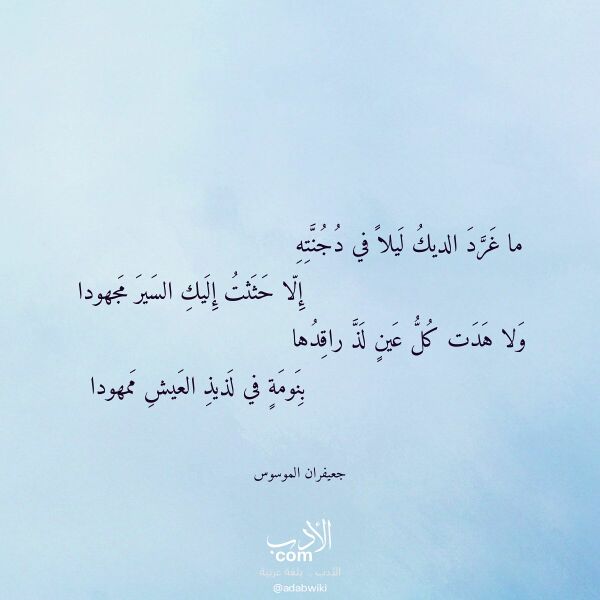 ما غَرَّدَ الديكُ لَيلاً في دُجُنَّتِهِ
إِلّا حَثَثتُ إِلَيكِ السَيرَ مَجهودا
وَلا هَدَت كُلُّ عَينٍ لَذَّ راقِدُها
بِنَومَةٍ في لَذيذِ العَيشِ مَمهودا
جعيفران الموسوس
الأدب
com
الأدب .. بلغة عربية
@adabwiki